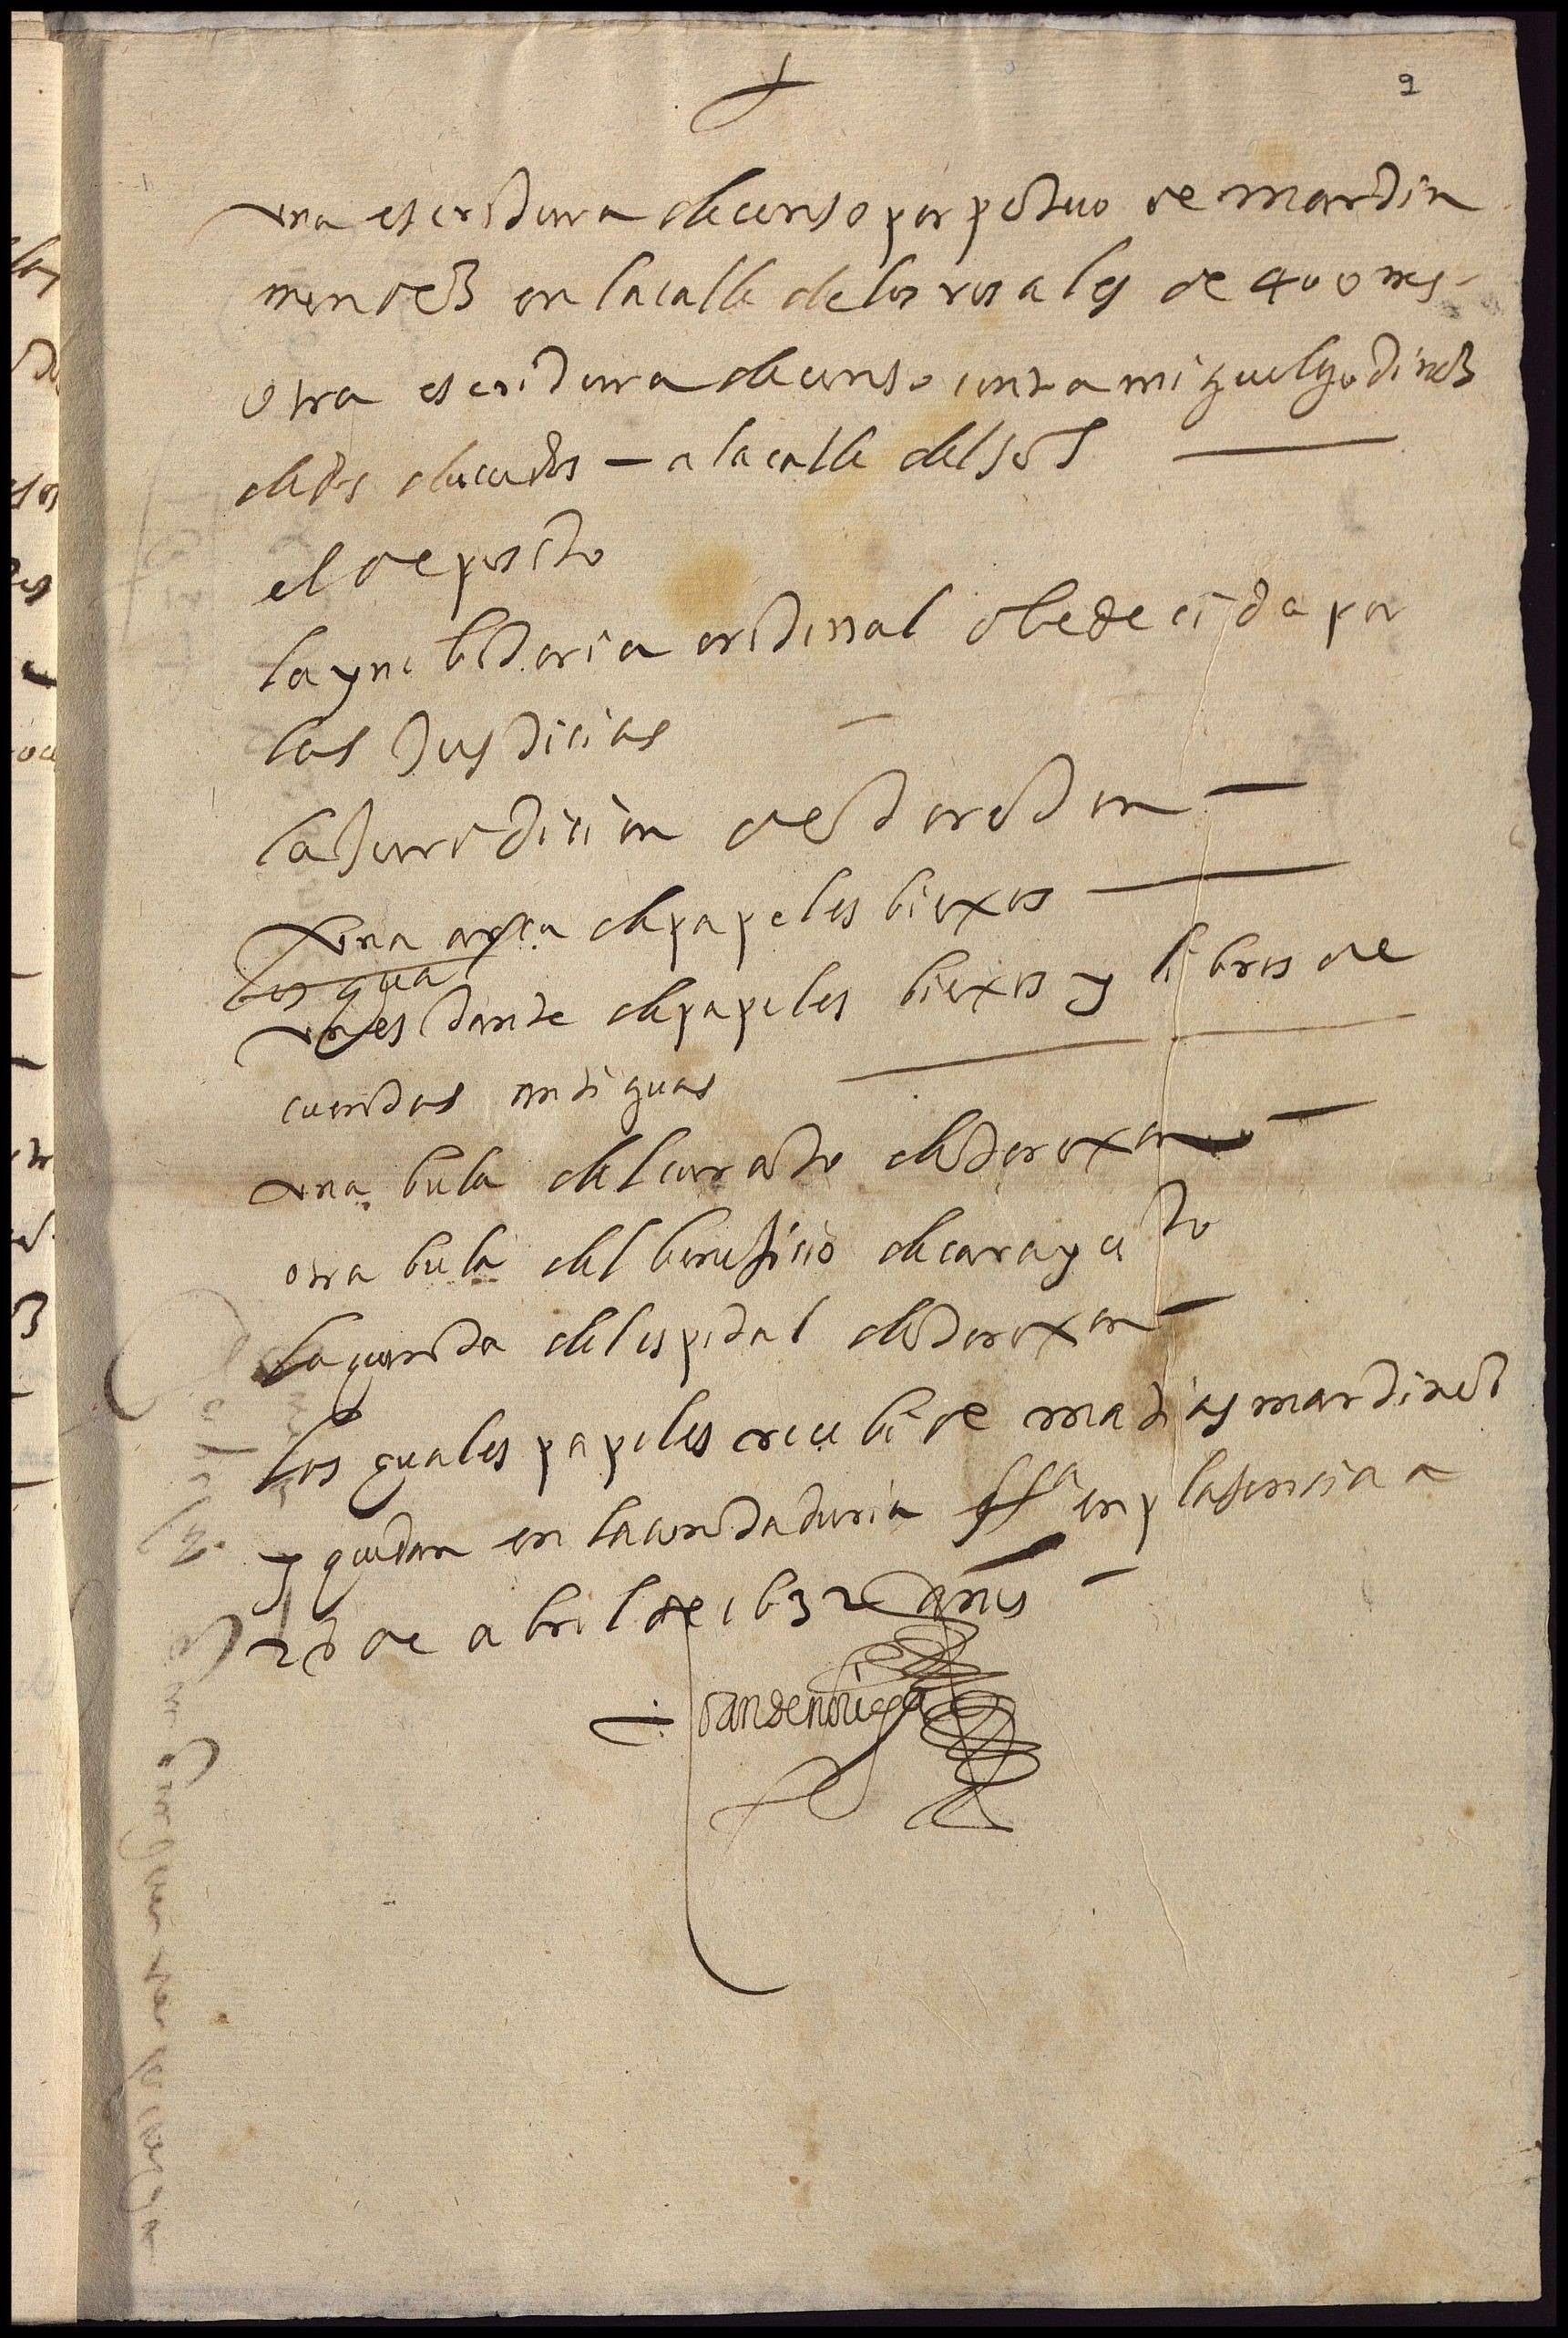 9
una escritura de censo perpetuo de martin
mendez en la calle de los rosales de 400 mrs
otra escritura de censo contra miguel godinez
de dos ducados - a la calle del sol
el deposito
la ynibitoria oridinal obedecida por
las Justicias
la Juridicion de torexon
una arca de papeles biexos
los qua
un estante de papeles biexos y libros de
cuentas antiguas
una bula del curato de torexon
otra bula del beneficio de
la quenta del espital de torexon
los quales papeles recebi de matias martinez
y quedan en la contaduria en plasencia a
de abril de 1632 años
Juan de noriega